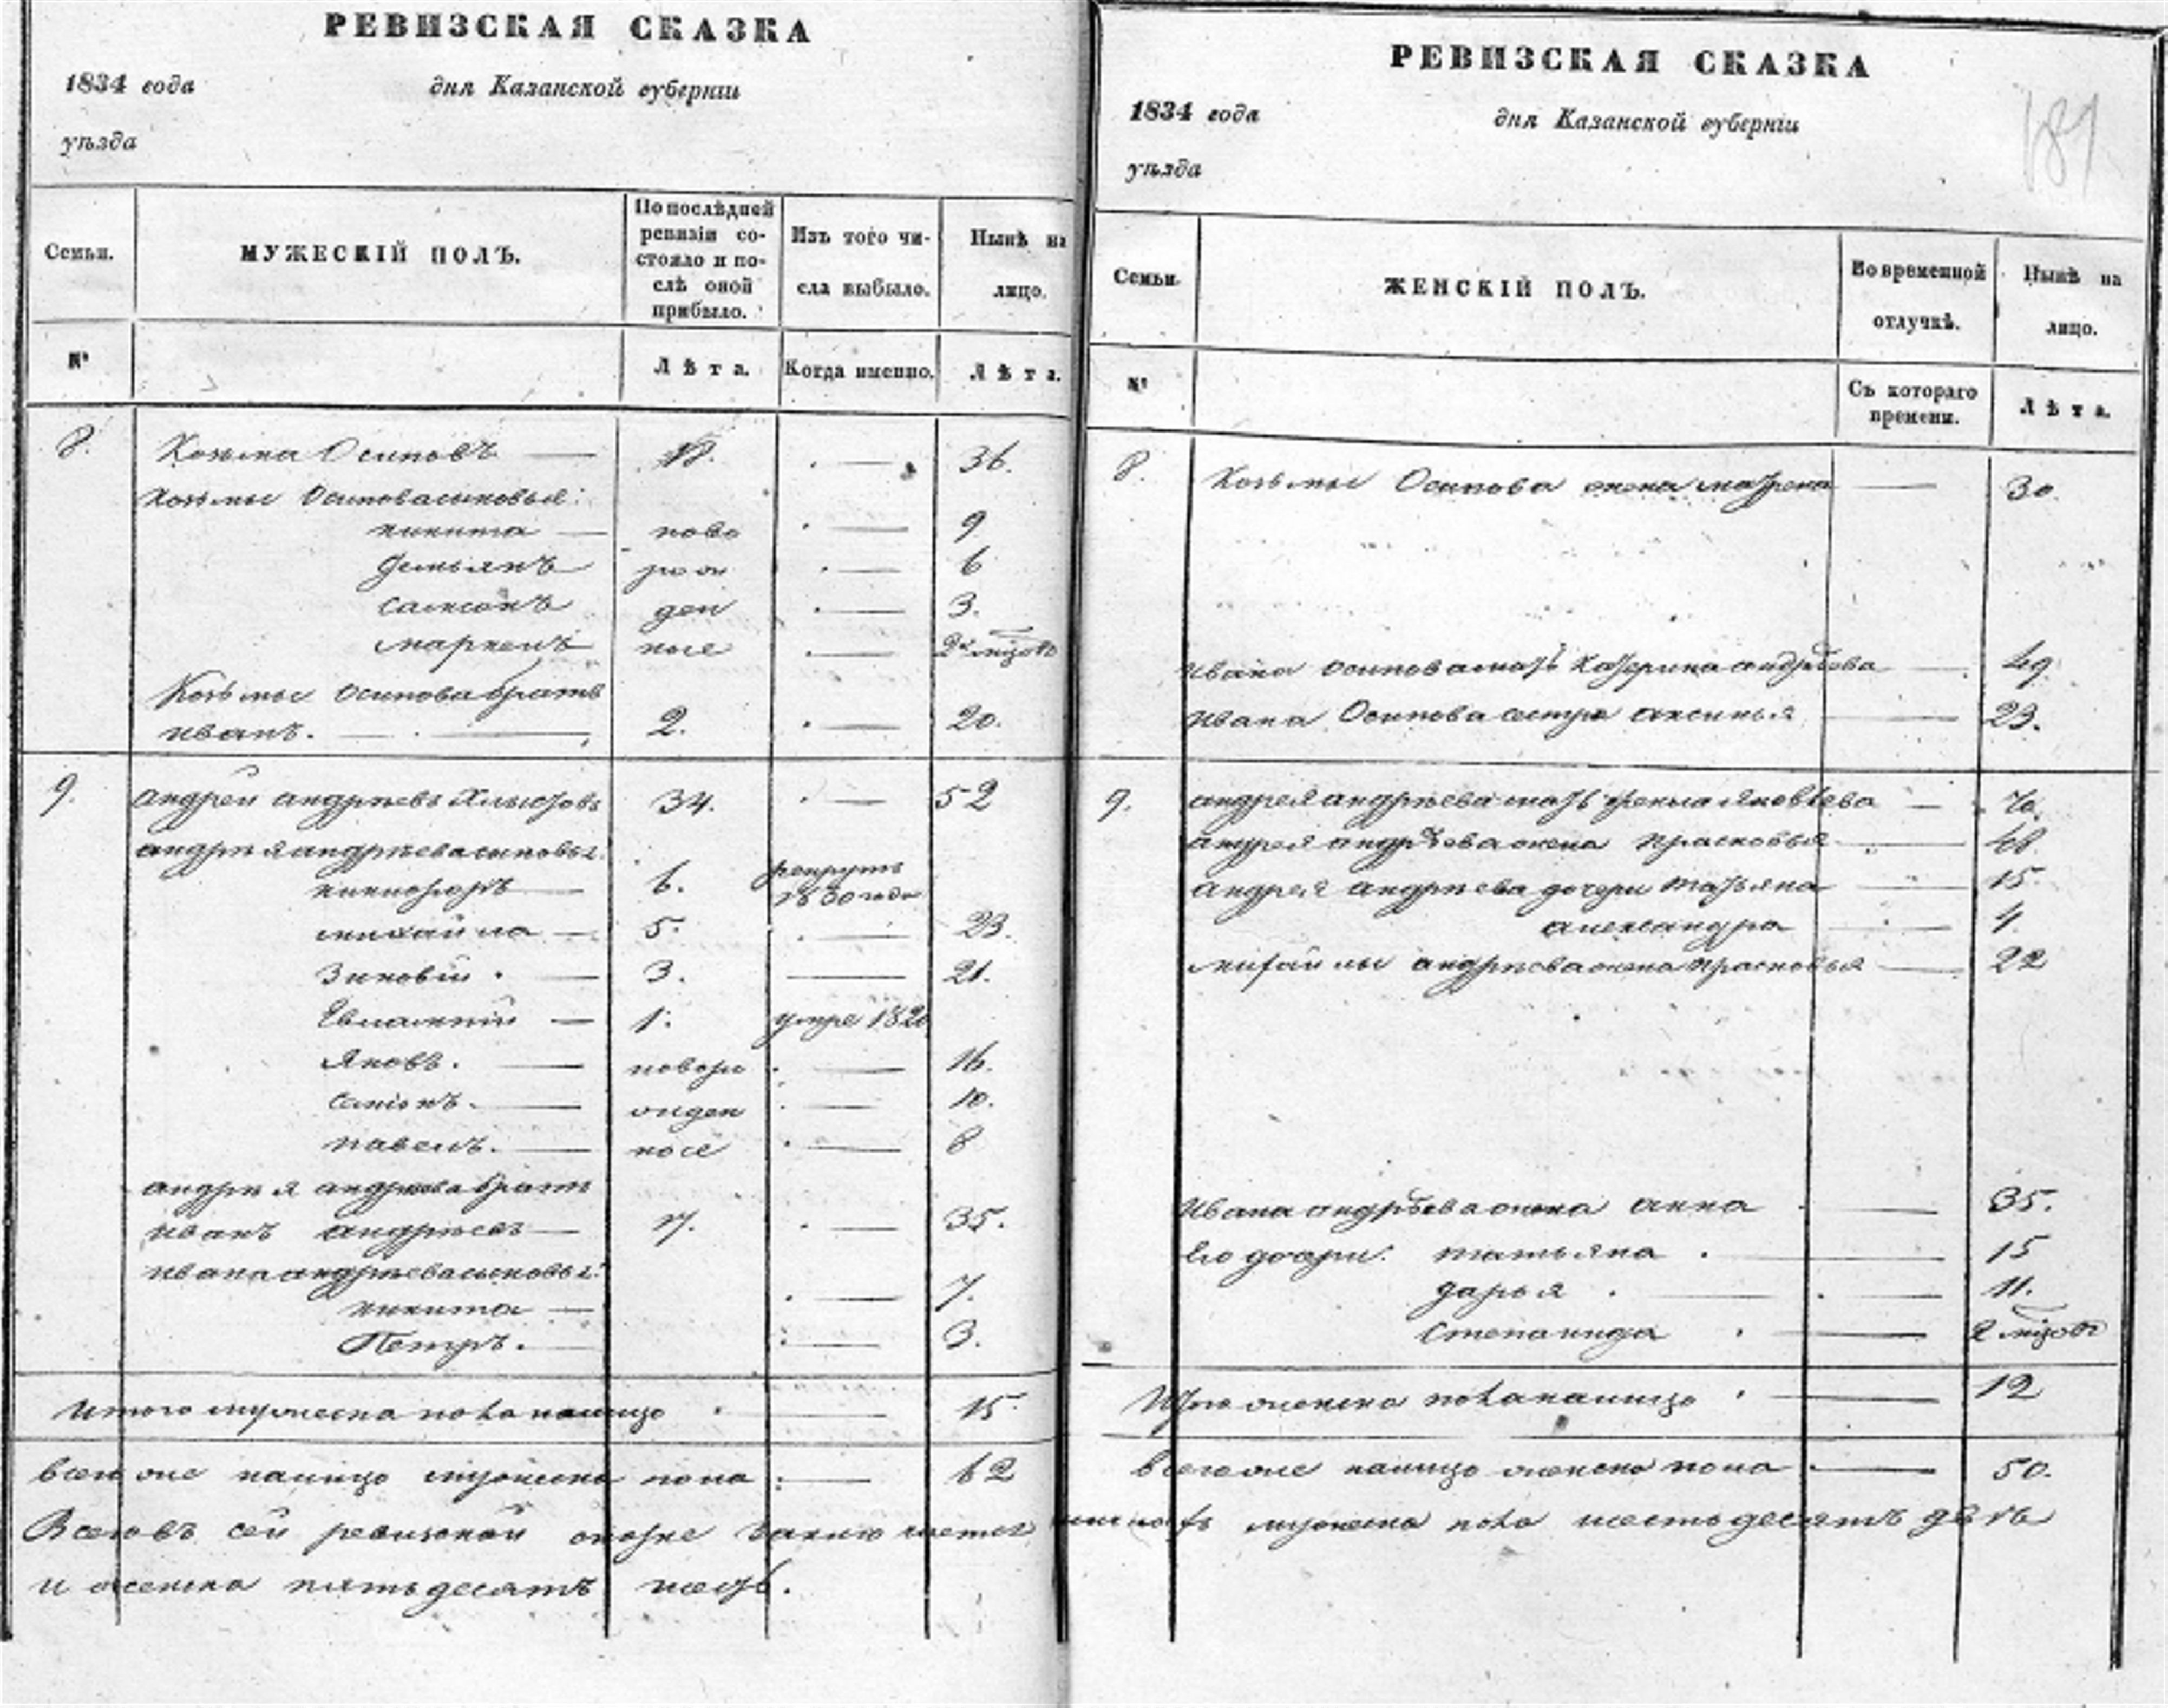 РЕВИЗСКАЯ СКАЗКА
1834 года дня Казанской губерніи
уѣзда
Семьи. МУЖЕСКІЙ ПОЛЪ. По послѣдней ревизіи состояло и послѣ оной прибыло. Изъ того числа выбыло. Нынѣ на лицо.
№ Лѣта. Когда именно. Лѣта.
8. Козьма Осиповъ — 18. — 36.
Козьмы Осипова сыновья:
никита — ново — 9
демьянъ рож — 6
самсонъ ден — 3.
маркелъ ные —
Козьмы Осипова братъ
иванъ. — 2. — 20.
9. андрей андрѣевъ 34. — 52
андрѣя андрѣева сыновья:
никифоръ — 6. рекрутъ въ 30 году
михайла — 5. — 23.
Зиновій — 3. — 21.
Евлампій — 1. умре 1820
Яковъ. — новоро — 16.
семіонъ. — жден — 10.
павелъ. — ные — 8
андрѣя андрѣева братъ
иванъ андрѣевъ — 17. — 35.
ивана андрѣева сыновья:
никита — 7.
Петръ. — 3.
Итого мужеска пола налицо — 15.
всего же налицо мужеска пола — 62
Всего въ сей ревизской
и женска пятьдесятъ
РЕВИЗСКАЯ СКАЗКА
1834 года дня Казанской губерніи
уѣзда
181
Семьи. ЖЕНСКІЙ ПОЛЪ. Во временной отлучкѣ. Нынѣ на лицо.
№ Съ котораго времени. Лѣта.
8. Козьмы Осипова жена матрена — 30.
Ивана Осипова мать Катерина андрѣева — 49.
Ивана Осипова сестра аксинья — 23.
9. андрея андрѣева мать Яковлева — 70.
андрея андрѣева жена прасковья — 48.
андрея андрѣева дочери татьяна — 15.
александра — 4.
михайлы андрѣева жена прасковья — 22
Ивана андрѣева жена анна — 35.
Его дочери: татьяна . — 15
дарья . — 11.
степанида — 2
Итого женска пола налицо — 12
всего же налицо женска пола — 50.
мужеска пола шестьдесятъ двѣ